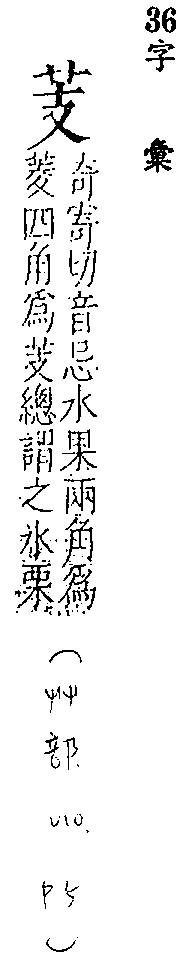 36字彙
芰
奇寄切音忌水果兩角爲
菱四角爲芰總謂之水栗
（艸部
）